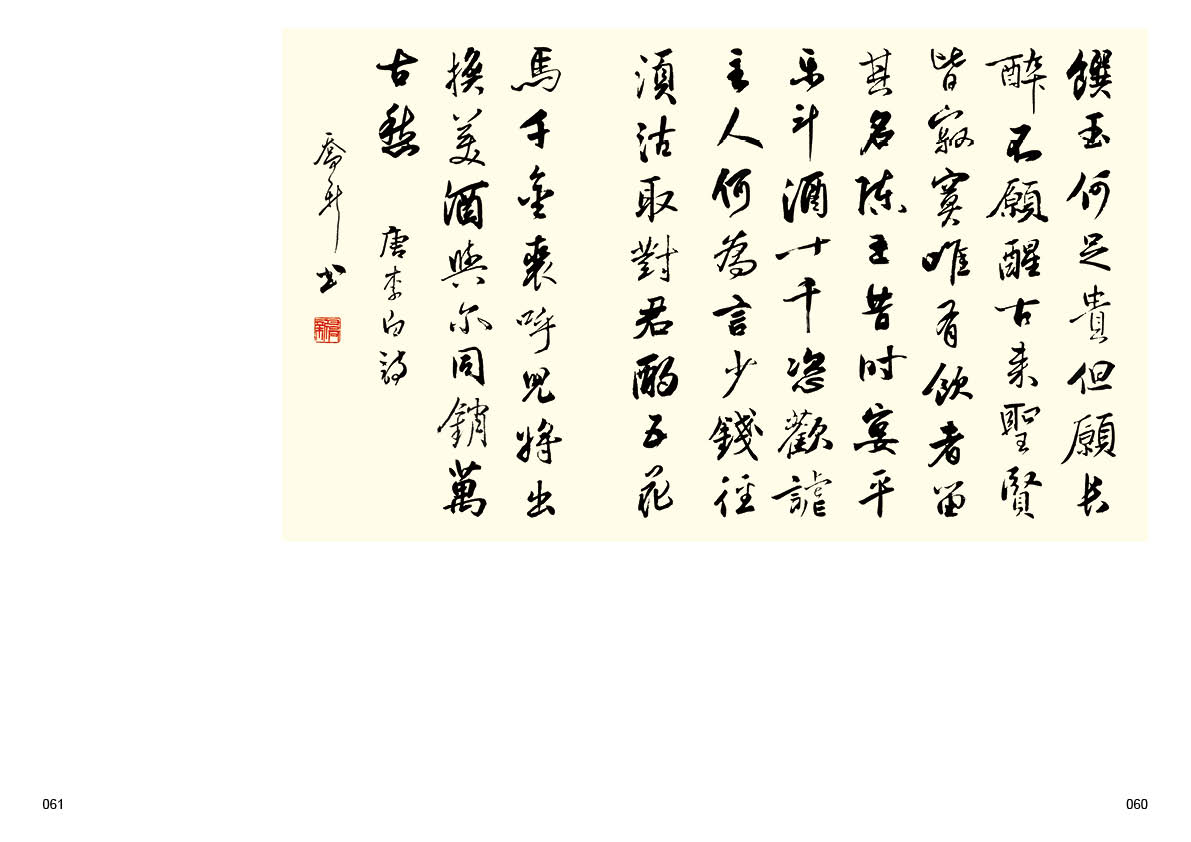 饌玉何足貴但願长
醉不願醒古来聖賢
皆寂寞唯有飲者留
其名陳王昔时宴平
乐斗酒十千恣歡謔
主人何為言少錢徑
須沽取對君酌五花
馬千金裘呼兒將出
換美酒與尔同銷萬
古愁 唐李白詩
喬 书
060
061